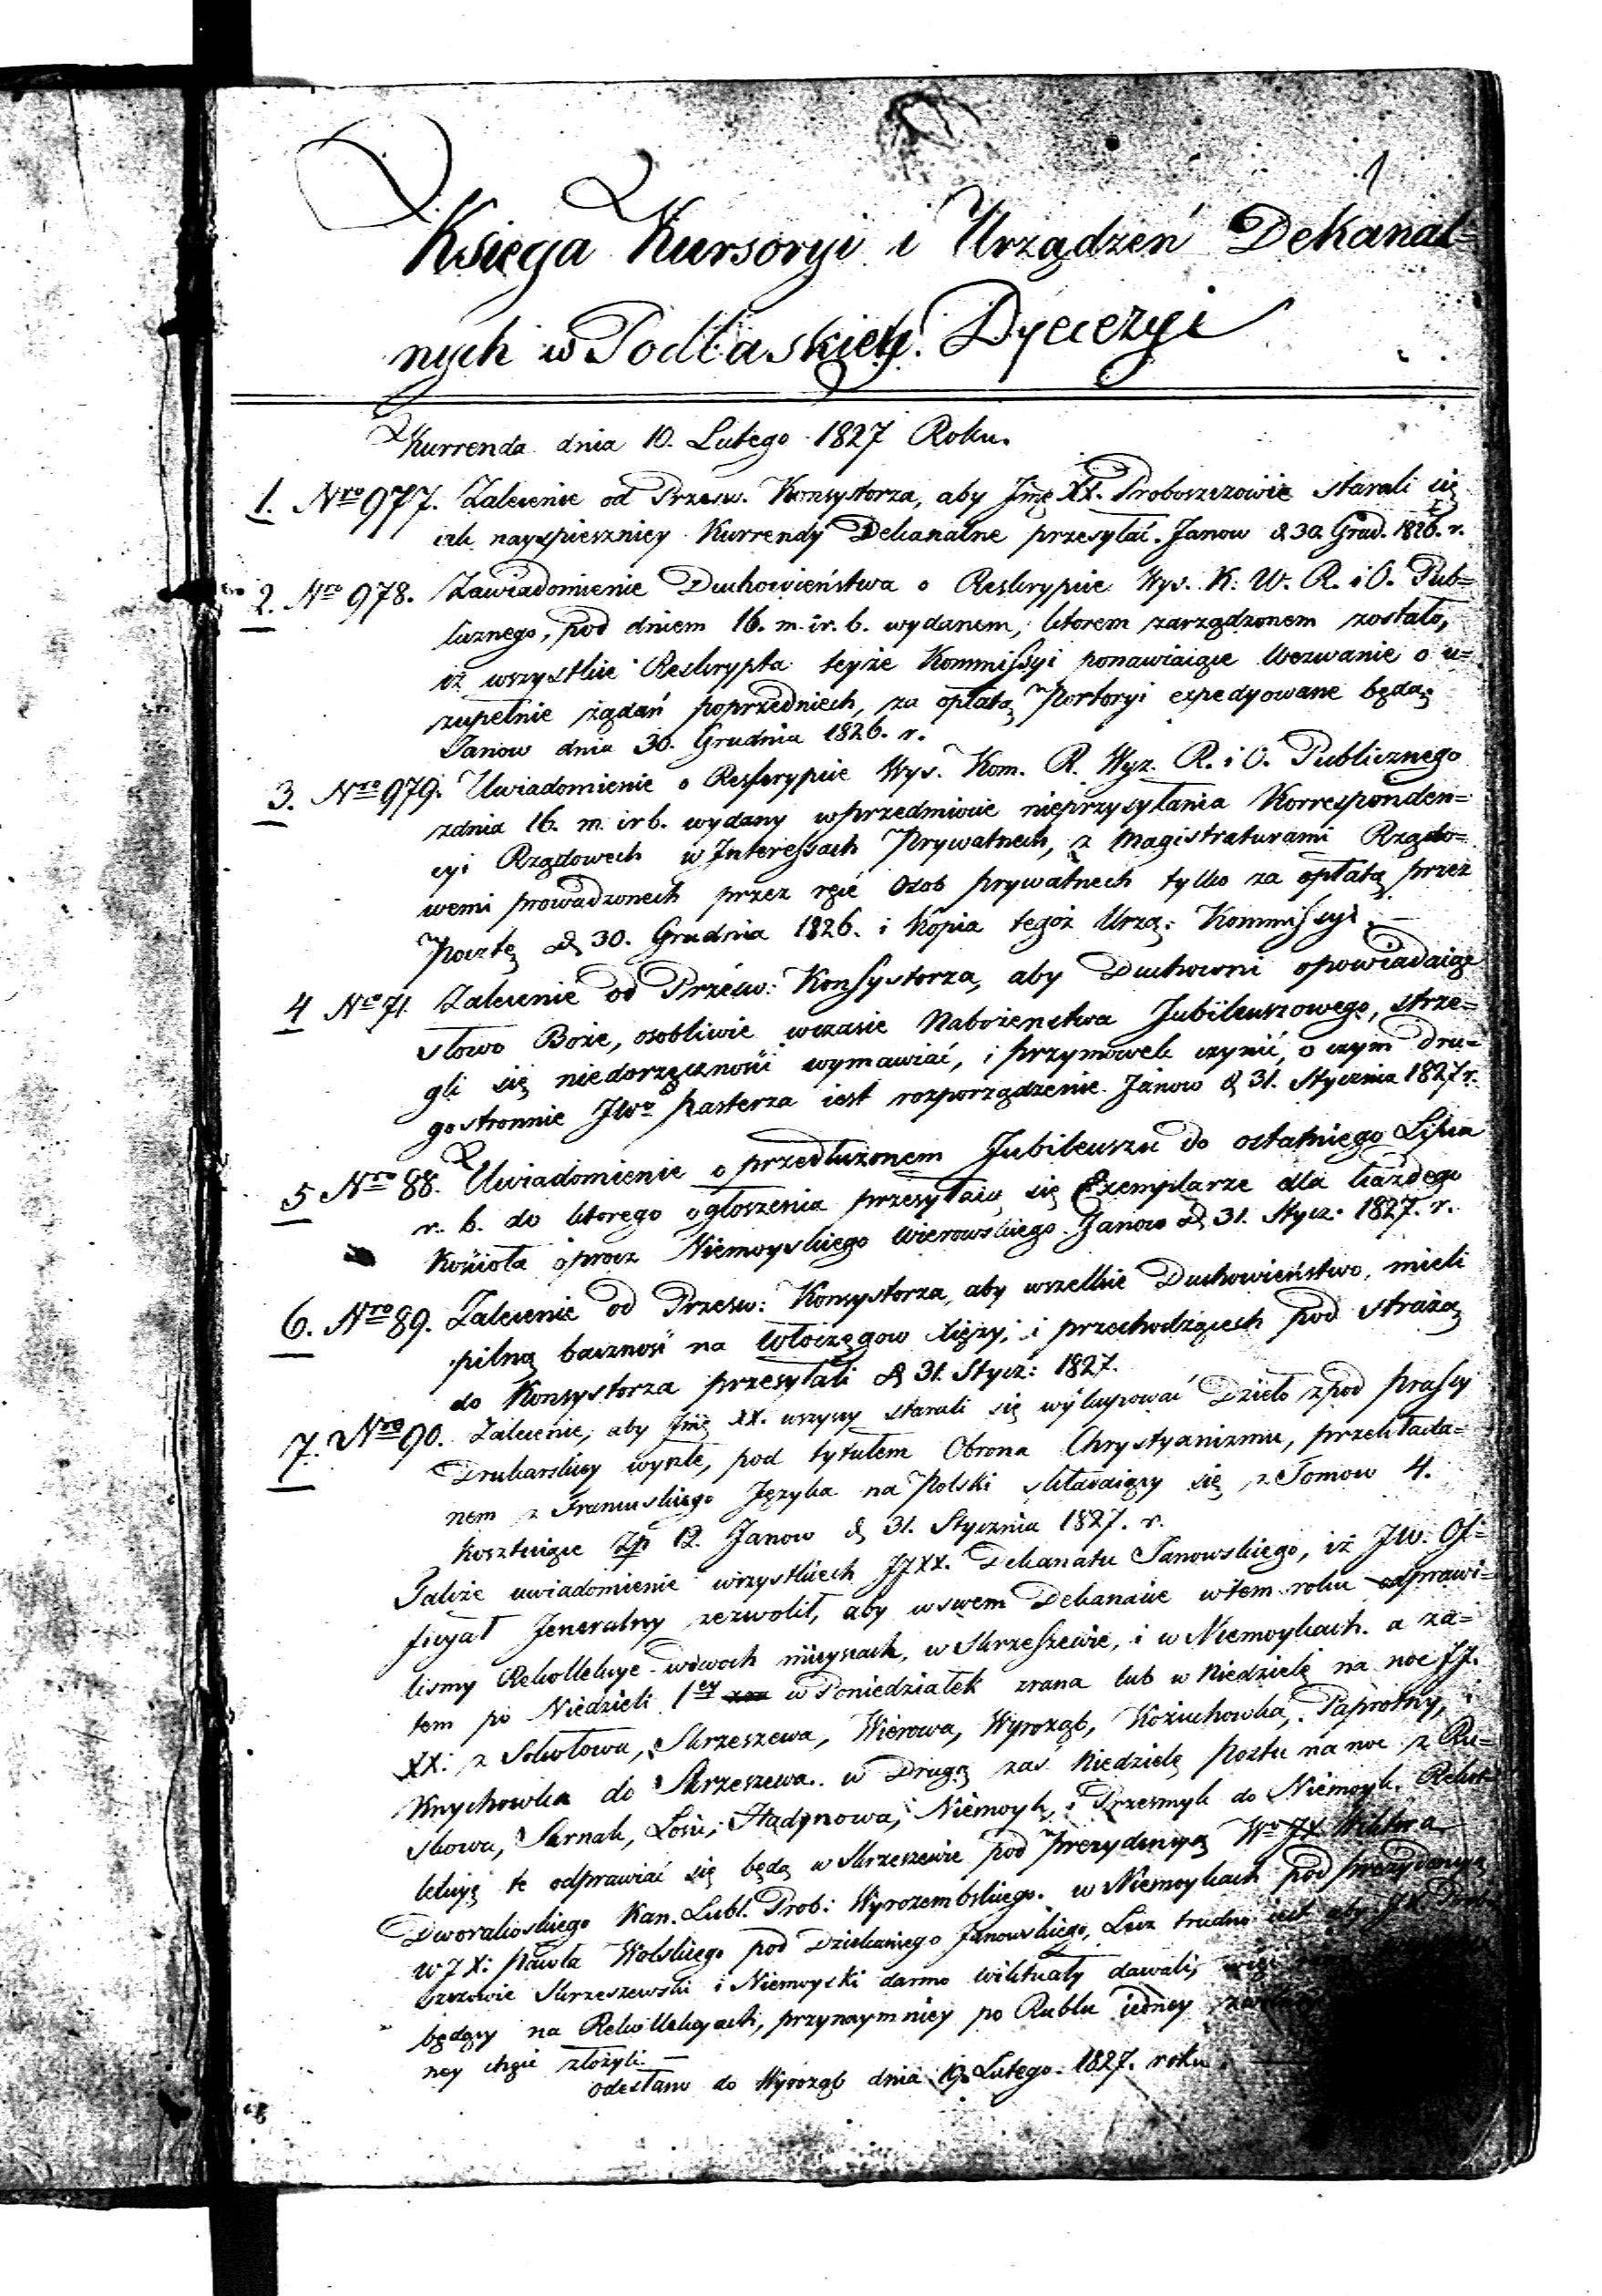 1
Księga Kursoryi i Urządzeń Dekanal=
nych w Podlaskiey. Dyecezyi
Kurrenda dnia 10. Lutego 1827 Roku.
1. Nro 977. Zalecenie od Przesw. Konsystorza, aby Jmę XX. Proboszczowie starali się
iak nayspieszniey Kurrendy Dekanalne przesyłać. Janow d 30 Grud. 1826. r.
2. Nro 978. Zawiadomienie Duchowieństwa o Reskrypcie Wys. K. W. R. i O. Pub=
licznego, pod dniem 16. m. i r. b. wydanem, ktorem zarządzonem zostało,
iż wszystkie Reskrypta teyże Kommissyi ponawiaiące Wezwanie o u=
zupełnie żądań poprzedniech, za opłatą Portoryi expedyowane będą.
Janow dnia 30. Grudnia 1826. r.
3. Nro 979. Uwiadomienie o Reskrypcie Wys. Kom. R. Wyz. R. i O. Publicznego
zdnia 16. m. i r b. wydany wprzedmiocie nieprzysyłania Korresponden=
cyi Rządowech w Interessach Prywatnech, z Magistraturami Rządo=
wemi prowadzonech przez ręcę Osob prywatnech tylko za opłatą przez
Pocztę d 30. Grudnia 1826. i Kopia tegoż Urzą: Kommissyi. —
4 No 71. Zalecenie od Przesw: Konsystorza, aby Duchowni opowiadaiąc
słowo Boże, osobliwie wczasie Nabożenstwa Jubileuszowego, strze=
gli się niedorzęczności wymawiać, i przymowek czynić, o czym dru=
gostronnie JWo Pasterza iest rozporządzenie. Janow d 31. Stycznia 1827 r.
5 Nro 88. Uwiadomienie o przedłużonem Jubileuszu do ostatniego Lipca
r. b. do ktorego ogłoszenia przesyłaią się Exemplarze dla każdego
Kościoła oprocz Niemoyskiego Wierowskiego. Janow d 31. Stycz. 1827. r.
6. Nro 89. Zalecenie od Przesw: Konsystorza, aby wszelkie Duchowieństwo, mieli
pilną baczność na Włoczęgow xięży, i przechodzącech pod strażą
do Konsystorza przesyłali d 31. Stycz: 1827.
7. Nro 90. Zalecenie, aby Jmę XX. wszyscy starali się wykupować Dzieło zpod prassy
Drukarskiey wyszłe, pod tytułem Obrona Chrystyanizmu, przekłada=
nem z Francuskiego Języka na Polski składaiący się z Tomow 4.
Kosztuiące Zp 12. Janow d 31. Stycznia 1827. r.
Także uwiadomienie wszystkiech JJXX. Dekanatu Janowskiego, iż JW. Of=
ficyał Jeneralny zezwolił, aby w swem Dekanacie wtem roku odprawi=
lismy Rekollekcye wdwoch mieyscach, w Skrzeszewie, i w Niemoykach. a za=
tem po Niedzieli 1ey w Poniedziałek zrana lub w Niedzielę na noc JJ.
XX: z Sokołowa, Skrzeszewa, Wierowa, Wyroząb, Kożuchowka, Paprotny, i
Knychowka do Skrzeszewa. w Drugą zaś Niedzielę Postu na noc z Ru=
skowa, Sarnak, Łosic, Hadynowa, Niemoyk, i Przesmyk do Niemoyk. Rekol=
lekcyę te odprawiać się będą w Skrzeszewie pod Prezydencyą Wo JX Wiktora
Dworakoskiego Kan. Lubl. Prob: Wyrozembskiego. w Niemoykach pod prezydencyą
W JX: Pawła Wolskiego pod Dziekaniego Janowskiego, Lecz trudno iest aby JX Probo=
szczowie Skrzeszewski i Niemoyski darmo wiktuały dawali, więc
będący na Rekollekcyach, przynaymniey po Rublu iedney
ney chcąc złożyli. —
odesłano do Wyroząb dnia 19 Lutego 1827. roku.